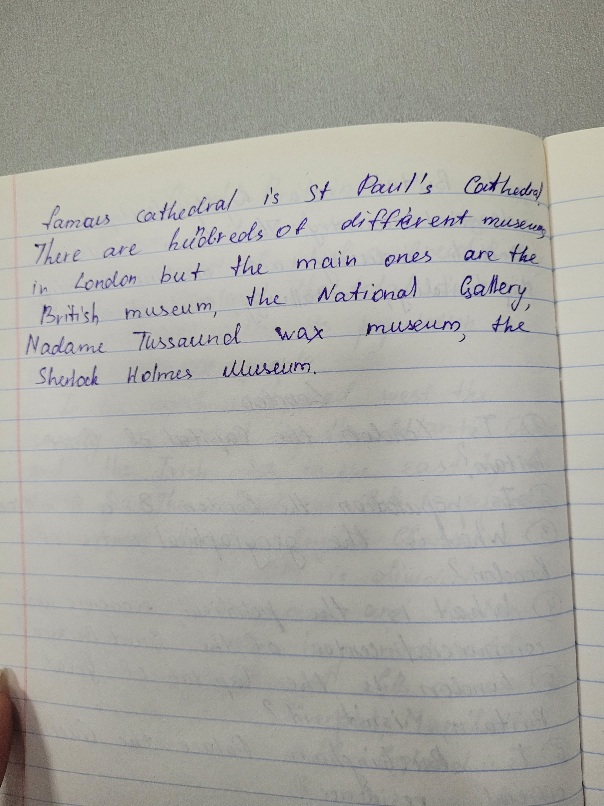 famous cathedral is St Paul's Cathedral
There are hundreds of different museums
in London but the main ones are the
British museum, the National Gallery,
Nadame Tussaund wax museum, the
Sherlock Holmes Museum.